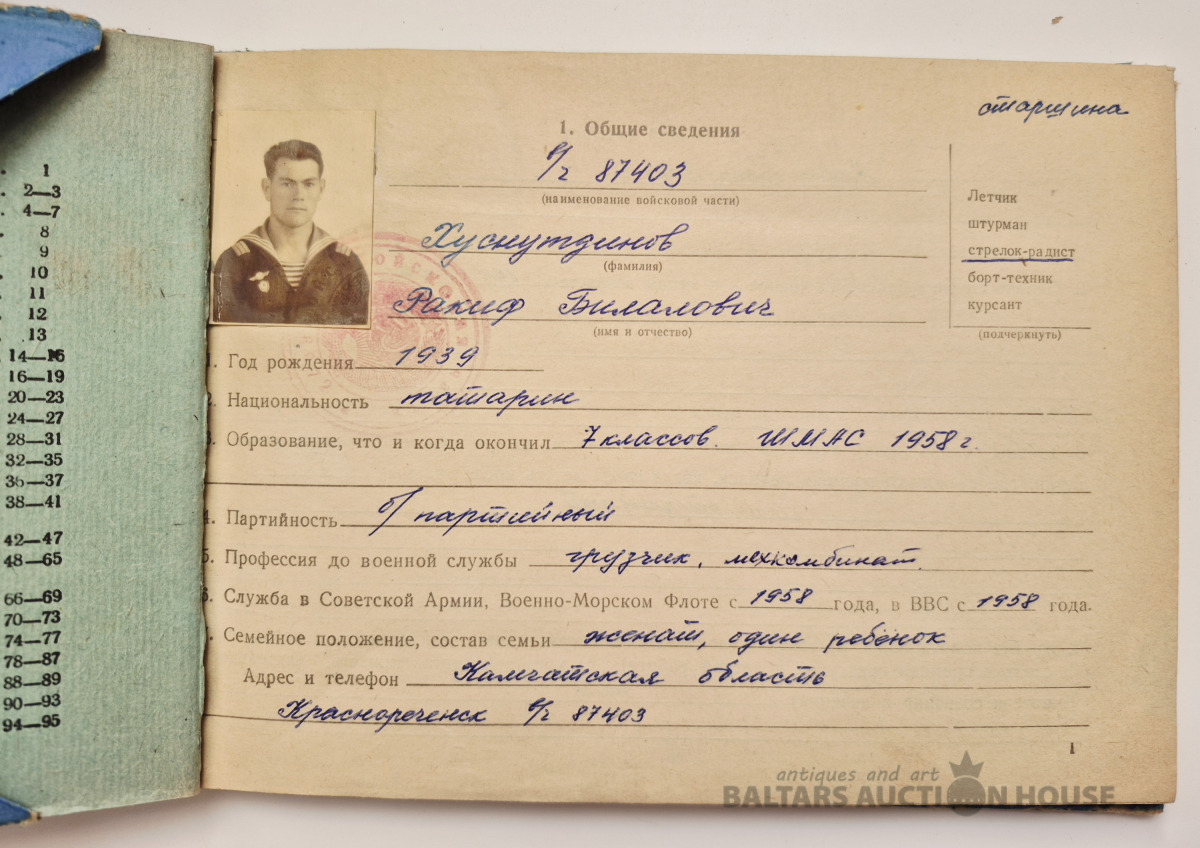 1
2—3
4—7
8
9
10
11
12
13
14—16
16—19
20—23
24—27
28—31
32—35
36—37
38—41
42—47
48—65
66—69
70—73
74—77
78—87
88—89
90—93
94—95
старшина
1. Общие сведения
в/ч 87403
(наименование войсковой части)
Хуснутдинов
(фамилия)
Ракиф Билалович
(имя и отчество)
Летчик
штурман
стрелок-радист
борт-техник
курсант
(подчеркнуть)
1. Год рождения 1939
2. Национальность татарин
3. Образование, что и когда окончил 7 классов. ШМАС 1958 г.
4. Партийность б/партийный
5. Профессия до военной службы грузчик, мехкомбинат
6. Служба в Советской Армии, Военно-Морском Флоте с 1958 года, в ВВС с 1958 года.
Семейное положение, состав семьи женат, один ребенок
Адрес и телефон Камчатская область
Краснореченск в/ч 87403
1
antiques and art
BALTARS AUCTION HOUSE